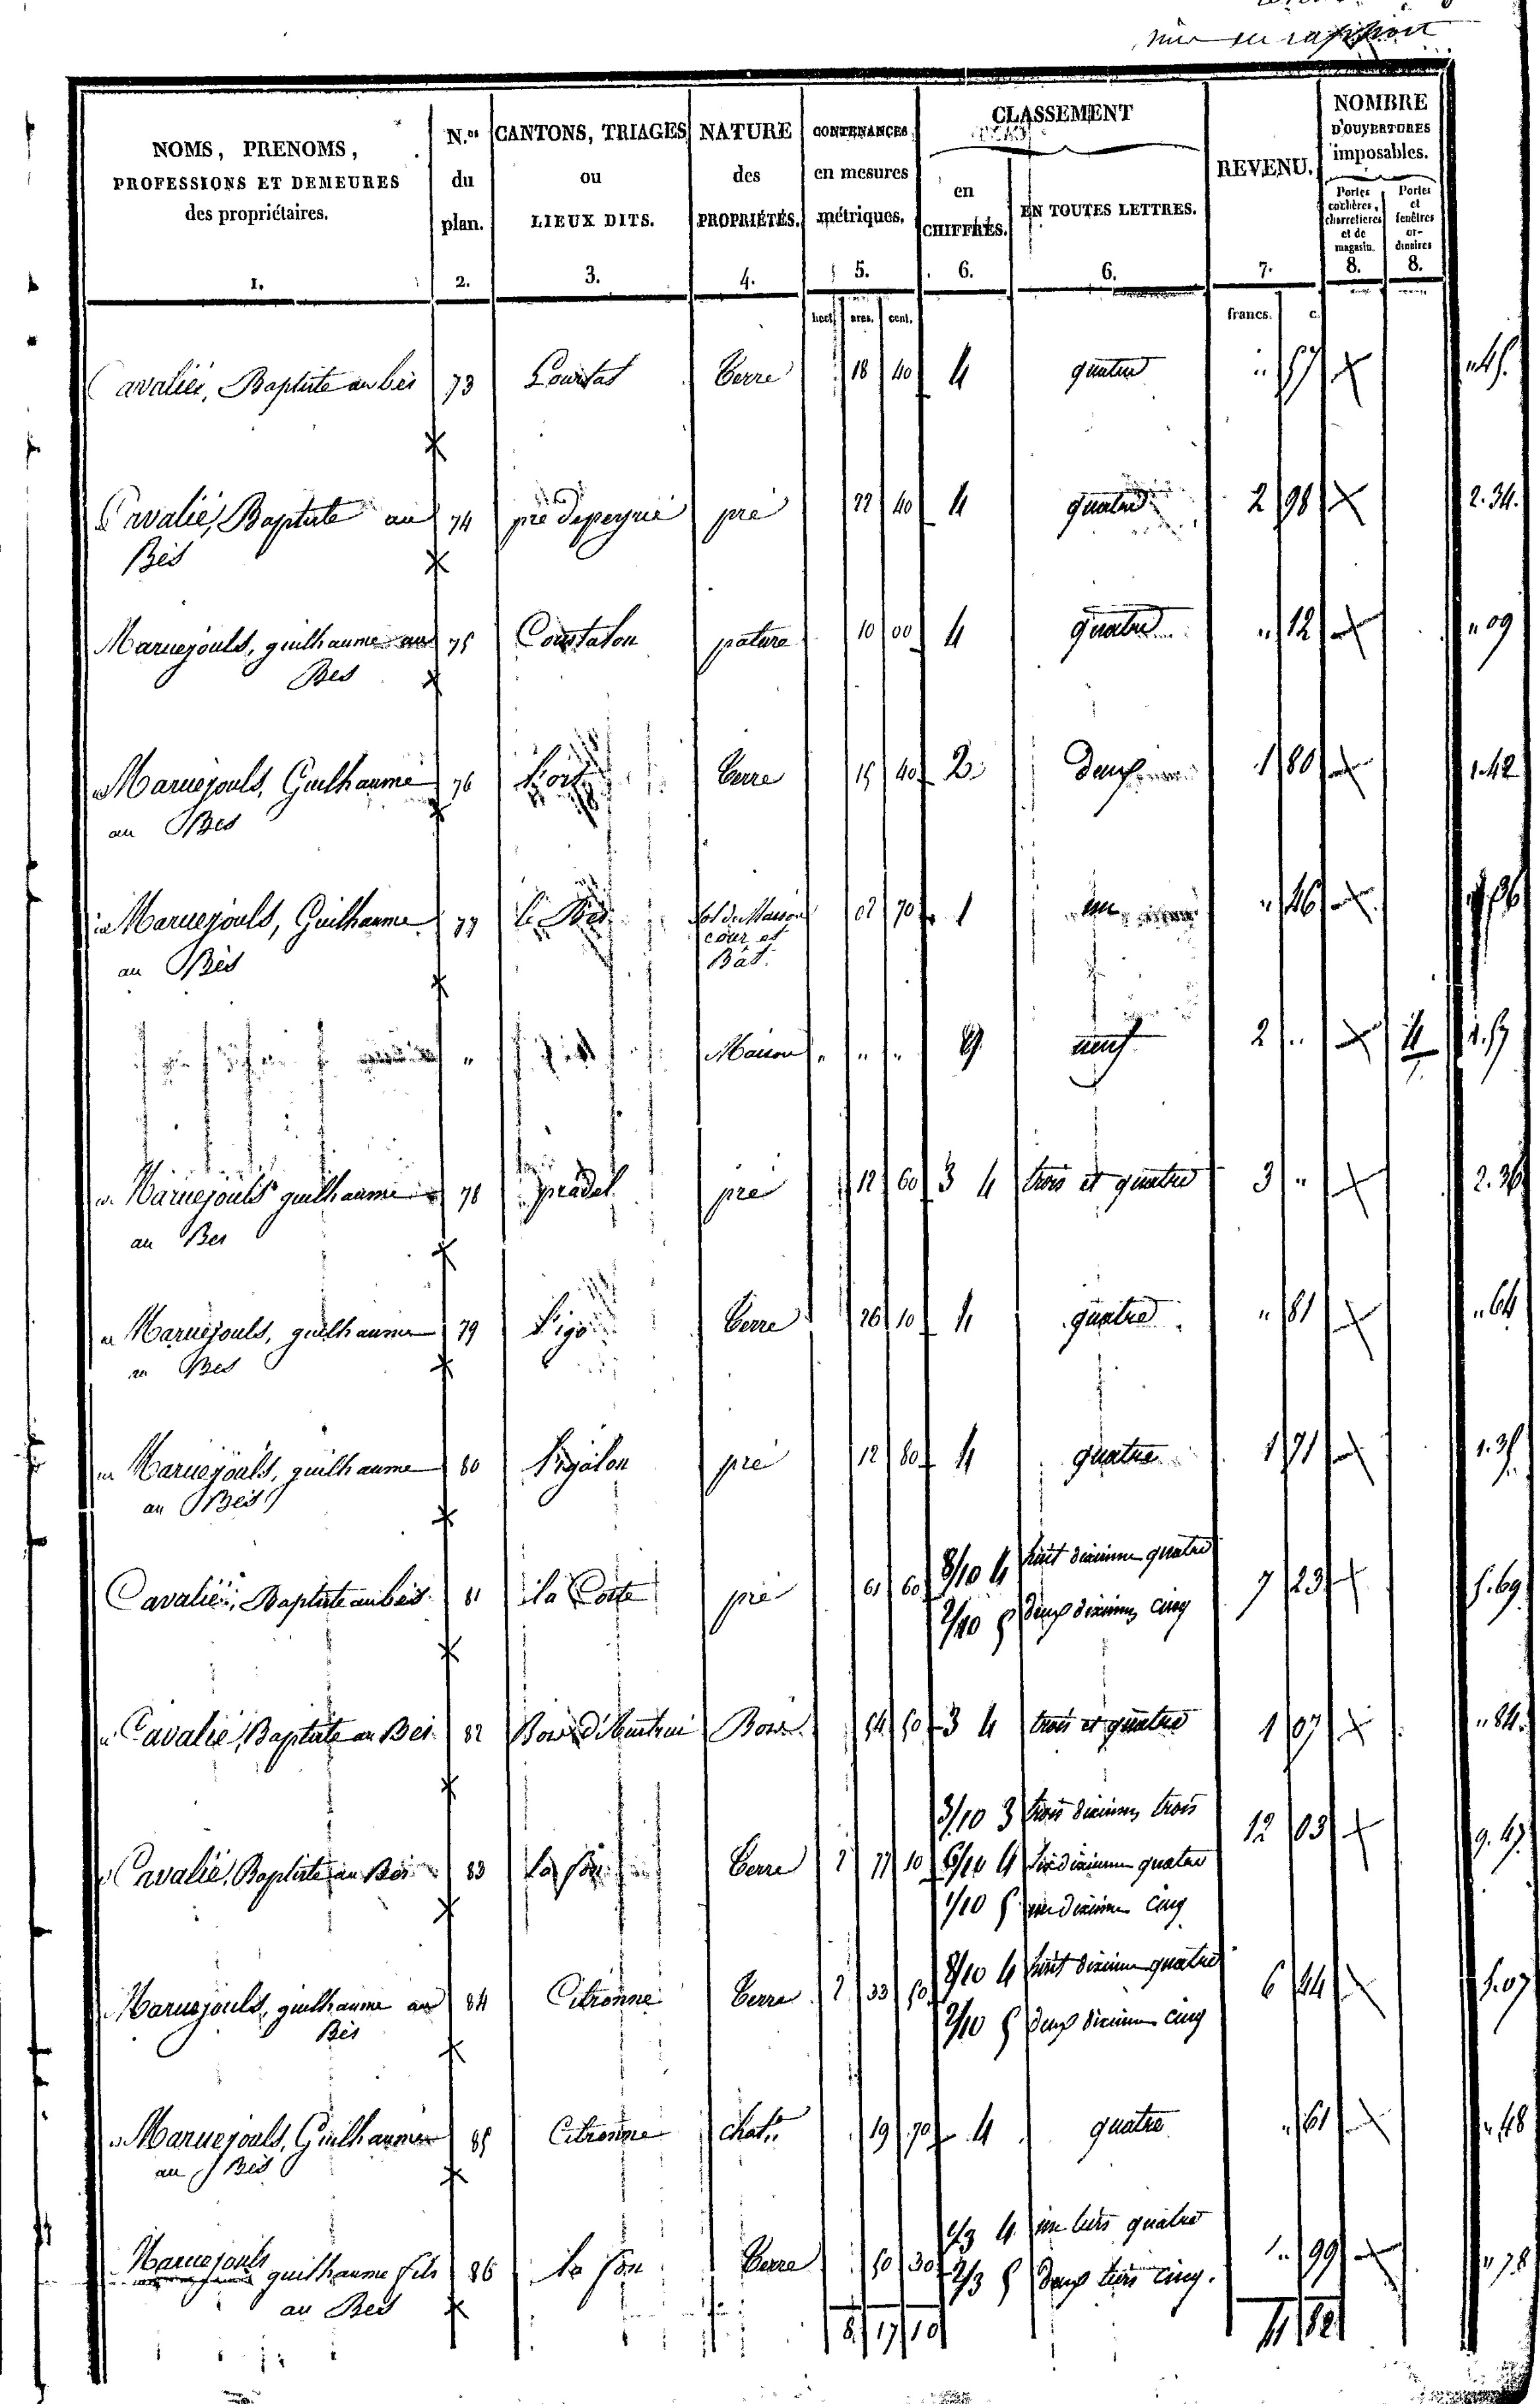 mis en
NOMS, PRENOMS,
PROFESSIONS ET DEMEURES
des propriétaires.
1.
N.os
du
plan.
2.
CANTONS, TRIAGES
ou
LIEUX DITS.
3.
NATURE
des
PROPRIÉTÉS.
4.
CONTENANCES
en mesures
métriques.
5.
CLASSEMENT
en
CHIFFRES.
6.
EN TOUTES LETTRES.
6.
REVENU.
7.
NOMBRE
D'OUVERTURES
imposables.
Portes
cochères,
charretieres
et de
magasin.
8.
Portes
et
fenêtres
or-
dinaires
8.
hect. ares. cent. francs. c.
Cavalié, Baptiste au bès 73 Terre 18 40 4 quatre " 57
Cavalié, Baptiste au 74 pré pré 22 40 4 quatre 2 98 2.34.
Bès
Maruejouls, guilhaume au 75 Coustalou pature 10 00 4 quatre " 12 " 09
Bes
Maruejouls, Guilhaume 76 Terre 15 40 2 Deux 1 80 1.42
au Bes
Maruejouls, Guilhaume 77 le Bès Sol de Maison 02 70 1 un " 46
cour et
au Bès Bât.
" Maison " " " 9 neuf 2 " 4 1.57
Maruejouls guilhaume 78 pradel pré 12 60 3 4 trois et quatre 3 " 2.36
au Bes
Maruejouls, guilhaume 79 Terre 26 10 4 quatre " 81 " 64
au Bes
Maruejouls, guilhaume 80 pré 12 80 4 quatre 1 71 1.35
au Bès
8/10 4 huit dixieme quatre
Cavalié, Baptiste au bès 81 la Coste pré 61 60 7 23 5.69
2/10 5 deux dixiemes cinq
Cavalié, Baptiste au Bes 82 Bois Bois 54 50 3 4 trois et quatre 1 07 " 84.
3/10 3 trois dixiemes trois 12 03
Cavalié, Baptiste au Bès 83 la fon Terre 2 77 10 6/10 4 Six dixieme quatre 9.47
1/10 5 un dixieme cinq
8/10 4 huit dixieme quatre
Maruejouls, guilhaume au 84 Citronne Terre 2 33 50 6 44 5.07
Bès 2/10 5 deux dixieme cinq
Maruejouls, Guilhaume 85 Citronne chat. 19 70 4 quatre " 61 " 48
au Bès
1/3 4 un tiers quatre
Maruejouls
guilhaume fils 86 la fon Terre 50 30 " 99 " 78
2/3 5 deux tiers cinq.
au Bes
8 17 10 41 82